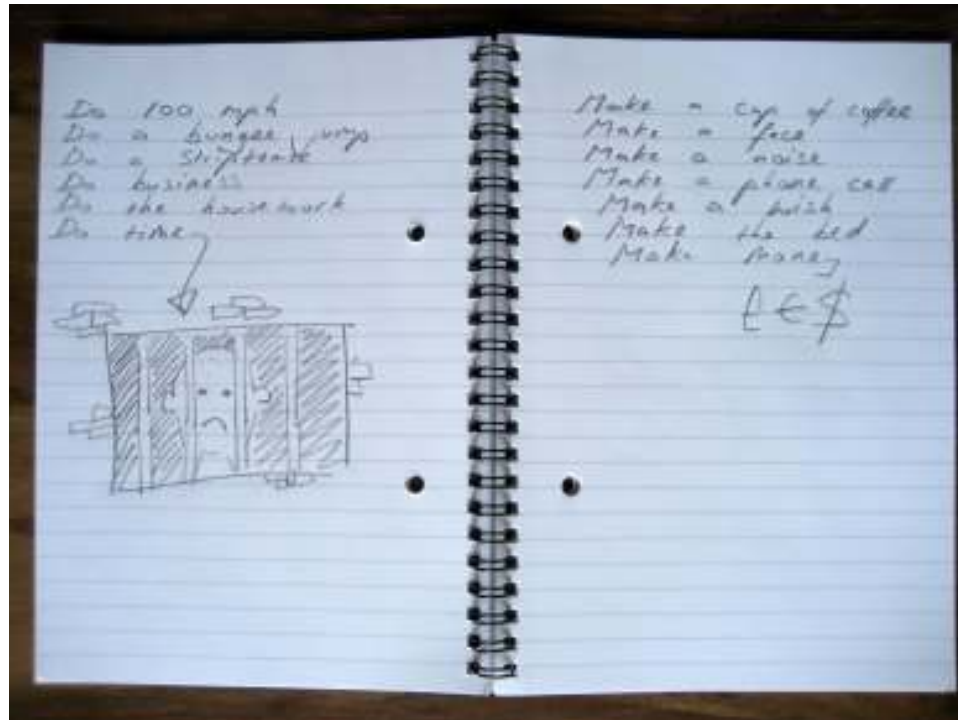 Do 100 mph
Do a bungee jump
Do a striptease
Do business
Do the housework
Do time
Make a cup of coffee
Make a face
Make a noise
Make a phone call
Make a wish
Make the bed
Make money
£€$